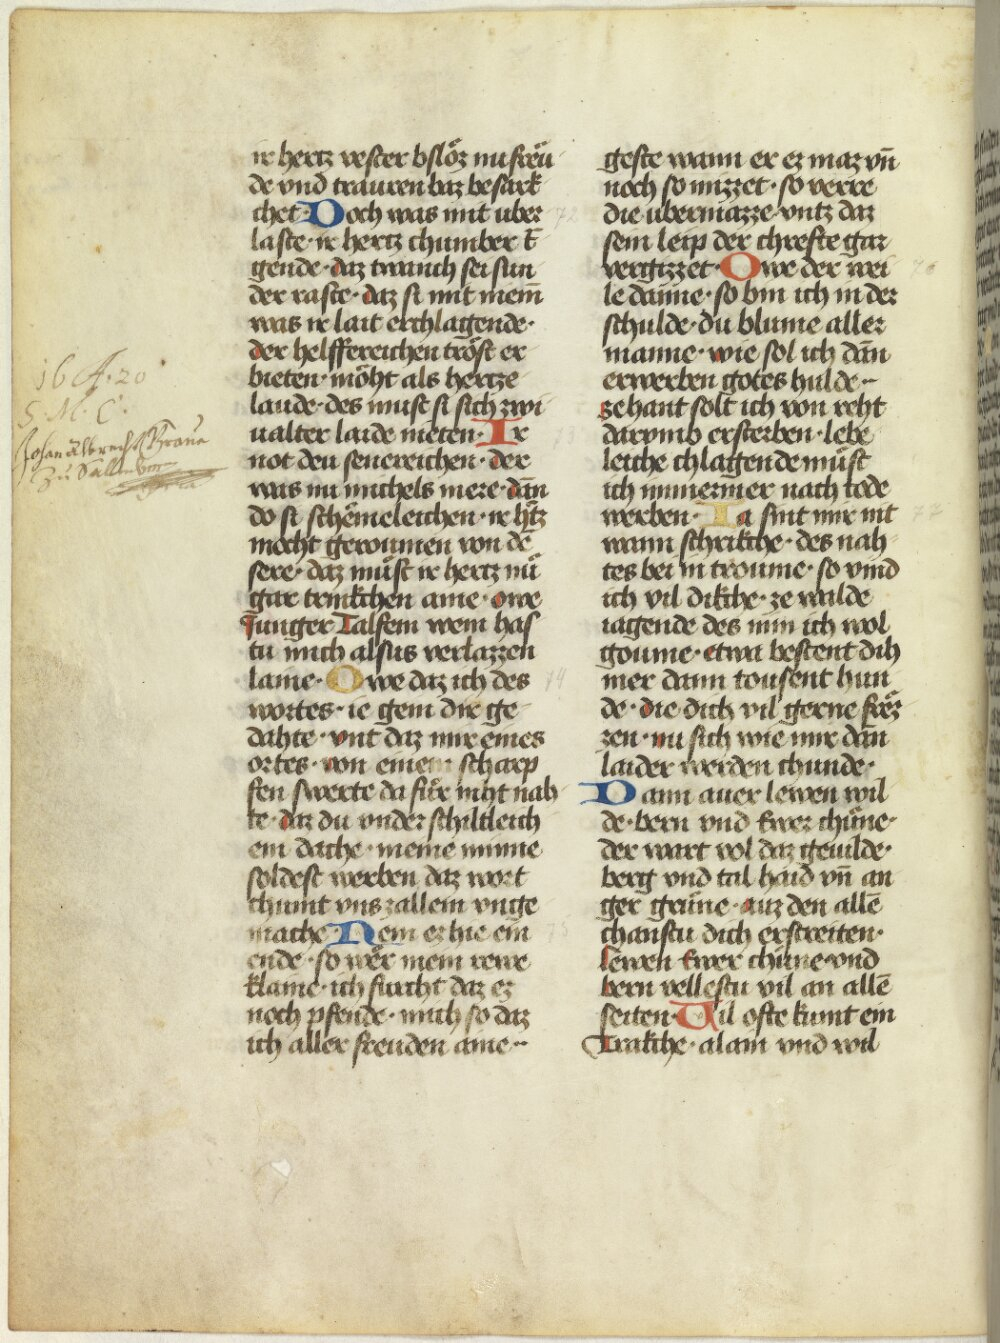 16 A. 20
S. M. C.
Johan Albrecht
ir hertz vester bslöz nu freü
de vnd trauren baz besark
chet· Doch was mit uber
laste· ir hertz chumber t̄
gende· daz twanch sei sun
der raste· daz si mit niem̄
was ir lait erchlagende·
der helffereichen tröst er
bieten· möht als hertze
laude· des must si sich zwi
ualter laide nieten· Ir
not den senereichen· der
was nu michels mere· dān
do si schëmeleichen· ir h̄tz
mocht geroumen von dē
sere· daz müst ir hertz nü
gar trinkchen ame· owe
Junger Talfein wem has
tu mich alsus verlazzen
lame· Owe daz ich des
wortes· ie gein dir ge
dahte· vnt daz mir eines
ortes· von einem scharp
fen swerte da für niht nah
te· daz du vnder schiltleich
em dache· meine minne
soldest werben daz wort
chumt vns zallem vnge
mache· Nem ez hie ein
ende· so wër mein rewe
klaine· ich furcht daz ez
noch pfende· mich so daz
ich aller freuden aine··
geste wann er ez maz vn̄
noch so mizzet· so verre
die ubermazze· vntz daz
sein leip der chrefte gar
vergizzet· Owe der wei
le danne· so bin ich in der
schulde· du blume aller
manne· wie sol ich dān
erwerben gotes hulde··
zehant solt ich von reht
darvmb ersterben· lebe
leiche chlagende müst
ich immermer nach tode
werben· Ia sint mir nit
wann schrikche· des nah
tes bei in troume· so vind
ich vil dikche· ze walde
iagende des nim ich wol
goume· etwa bestent dih
mer dann tousent hun
de· die dich vil gerne frëz
zen· nu sich wie mir dān
laider werden chunde·
Dann auer lewen wil
de· bern vnd Ewer chüne·
der wart vol daz geuilde·
berg vnd tal haid vn̄ an
ger grüne· auz den allē
chanstu dich erstreiten·
lewen Ewer chüne· vnd
bern vellestu vil an allē
seiten· Vil ofte kumt ein
Trakche· alain vnd wil
72
73
74
75
76
77